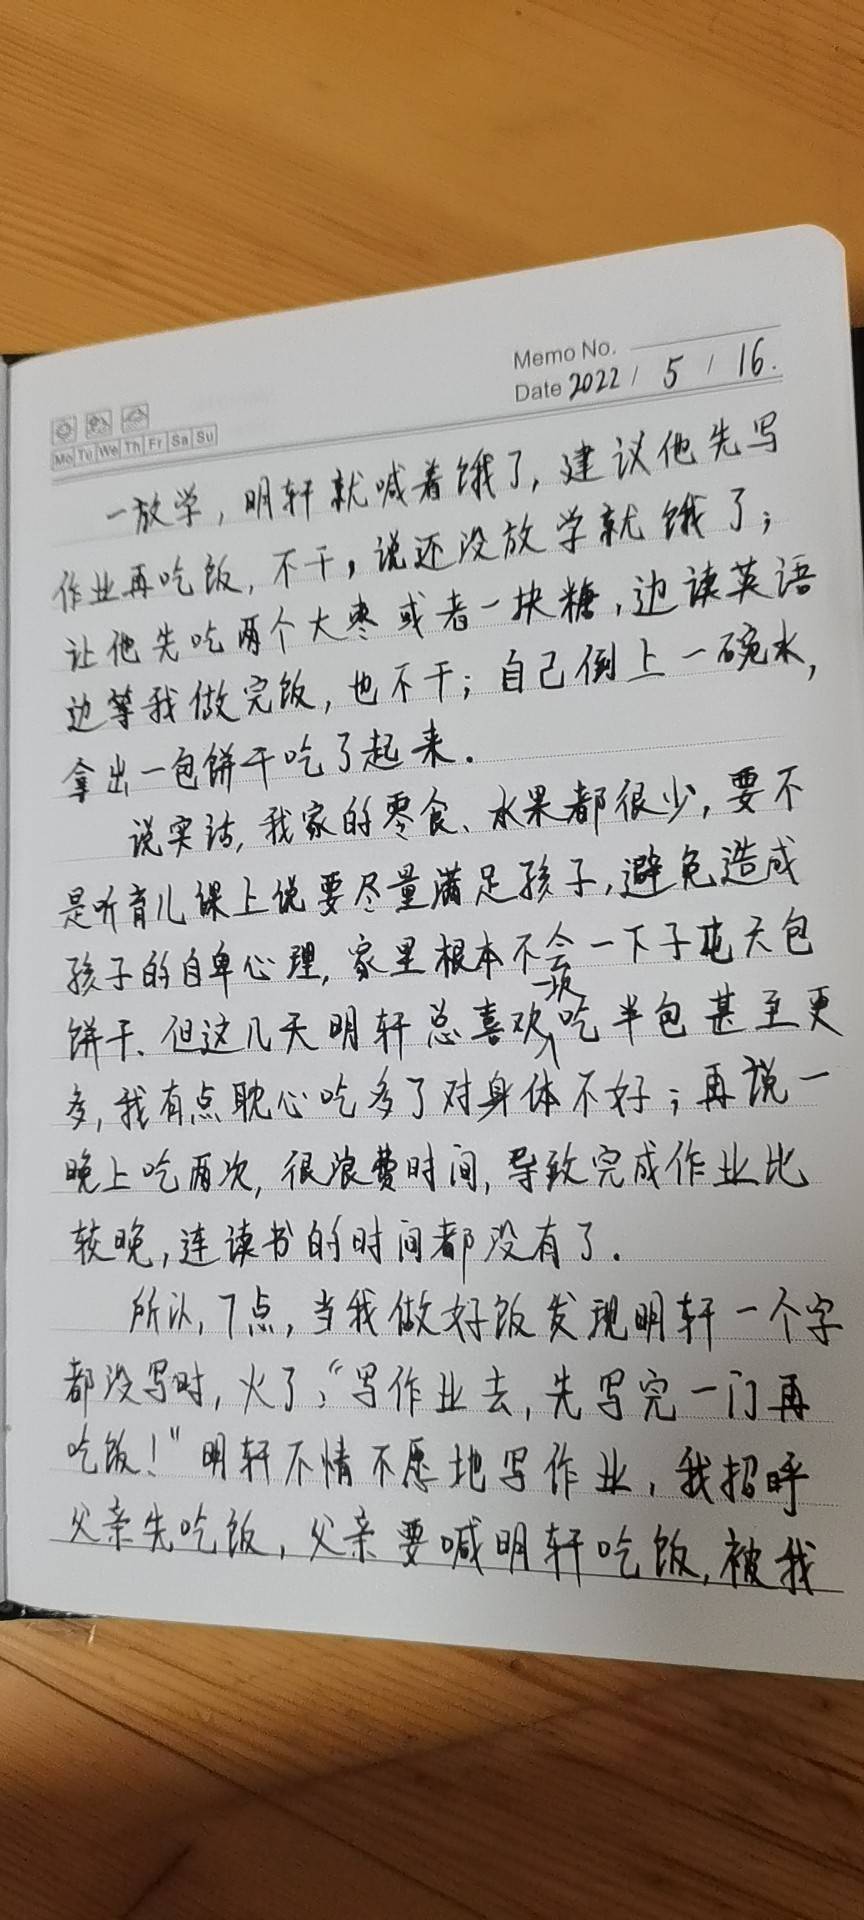 Memo No.
Date 2022 / 5 / 16.
Mo Tu We Th Fr Sa Su
一放学，明轩就喊着饿了，建议他先写
作业再吃饭，不干，说还没放学就饿了；
让他先吃两个大枣或者一块糖，边读英语
边等我做完饭，也不干；自己倒上一碗水，
拿出一包饼干吃了起来．
说实话，我家的零食、水果都很少，要不
是听育儿课上说要尽量满足孩子，避免造成
孩子的自卑心理，家里根本不会一下子屯大包
饼干、但这几天明轩总喜欢一次吃半包甚至更
多，我有点耽心吃多了对身体不好；再说一
晚上吃两次，很浪费时间，导致完成作业比
较晚，连读书的时间都没有了．
所以，7点，当我做好饭发现明轩一个字
都没写时，火了：“写作业去，先写完一门再
吃饭！”明轩不情不愿地写作业，我招呼
父亲先吃饭，父亲要喊明轩吃饭，被我